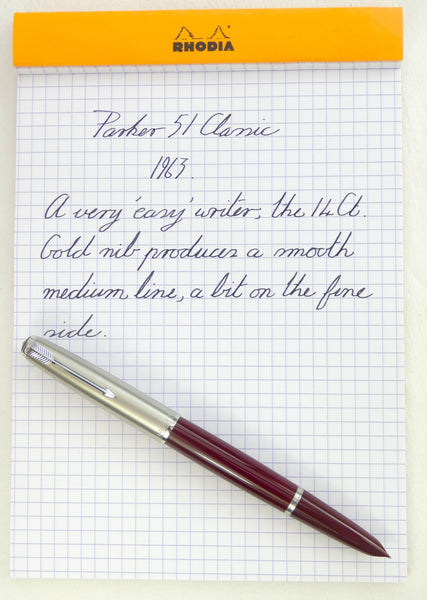 RHODIA
Parker 51 Classic
1963.
A very 'easy' writer, the 14 Ct.
Gold nib produces a smooth
medium line, a bit on the fine
side.